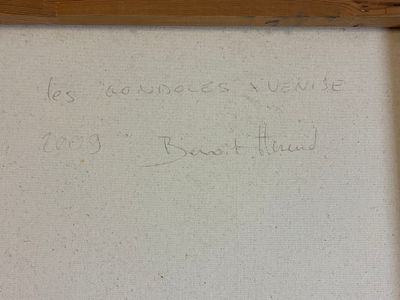 les GONDOLES à VENISE
2009 Benoit